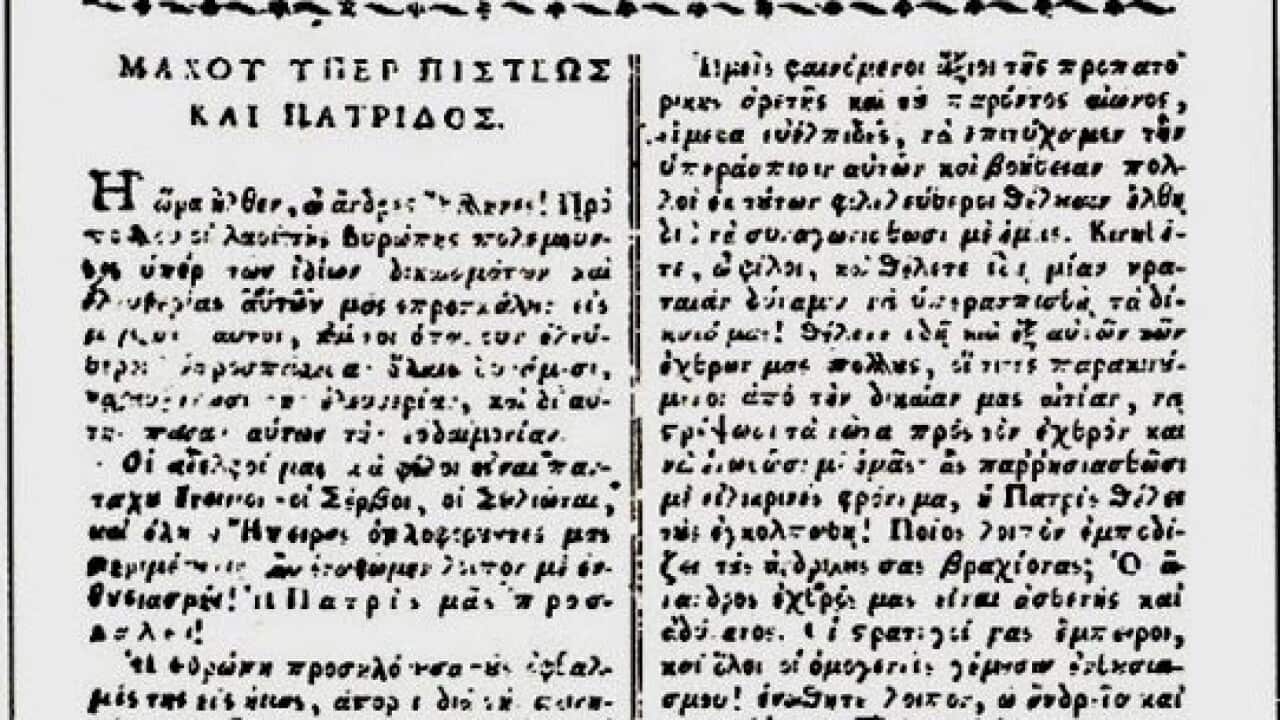 ΜΑΧΟΥ ΥΠΕΡ ΠΙΣΤΕΩΣ
ΚΑΙ ΠΑΤΡΙΔΟΣ.
Η ὥρα ἦλθεν, ὦ ἄνδρες Ἕλληνες! Πρὸ
πολλοῦ οἱ λαοὶ τῆς Εὐρώπης πολεμοῦν-
τες ὑπὲρ των ἰδίων δικαιωμάτων καὶ
ἐλευθερίας αὑτῶν μᾶς ἐπροσκάλουν εἰς
αὐτοὶ,
καὶ δι' αὐ-
τῆς πᾶσαν αὐτῶν τὴν εὐδαιμονίαν.
Οἱ ἀδελφοί μας καὶ φίλοι εἶναι παν-
ταχοῦ ἕτοιμοι· οἱ Σέρβοι, οἱ Σουλιῶται,
καὶ ὅλη ἡ Ἤπειρος ὁπλοφοροῦντες μᾶς
περιμένουν· ἂς ἑνωθῶμεν λοιπὸν μὲ ἐν-
θουσιασμόν! Ἡ Πατρὶς μᾶς προσ-
καλεῖ!
Ἡ Εὐρώπη προσηλόνουσα τοὺς ὀφθαλ-
μούς της εἰς ἡμᾶς, ἀπορεῖ διὰ τὴν ἀκινη-
Ἡμεῖς φαινόμενοι ἄξιοι τῆς προπατο
ρικης ἀρετῆς καὶ τοῦ παρόντος αἰῶνος,
εἴμεθα εὐέλπιδες, νὰ ἐπιτύχωμεν τὴν
ὑπεράσπισιν αὐτῶν καὶ βοήθειαν πολ-
λοὶ ἐκ τούτων φιλελεύθεροι θέλουσιν ἔλθῃ
διὰ νὰ συναγωνισθῶσι μὲ ἡμᾶς. Κινηθῆ-
τε, ὦ φίλοι, καὶ θέλετε ἰδῆ μίαν κρα-
ταιὰν δύναμιν νὰ ὑπερασπισθῇ τὰ δί-
καιά μας! Θέλετε ἰδῆ καὶ ἐξ αὐτῶν τῶν
ἐχθρῶν μας πολλοὺς, οἵτινες παρακινού-
μενοι ἀπὸ τὴν δικαίαν μας αἰτίαν, νὰ
στρέψωσι τὰ νῶτα πρὸς τὸν ἐχθρὸν καὶ
νὰ ἑνωθῶσι μὲ ἡμᾶς· ἂς παῤῥησιασθῶσι
μὲ εἰλικρινὲς φρόνημα, ἡ Πατρὶς θέλει
τοὺς ἐγκολπωθῇ! Ποῖος λοιπὸν ἐμποδί-
ζει τοὺς ἀνδρικούς σας βραχίονας; Ὁ ἄ-
νανδρος ἐχθρός μας εἶναι ἀσθενὴς καὶ
ἀδύνατος. Οἱ στρατηγοί μας ἔμπειροι,
καὶ ὅλοι οἱ ὁμογενεῖς γέμουσιν ἐνθουσια-
σμοῦ! ἑνωθῆτε λοιπὸν, ὦ ἀνδρεῖοι καὶ